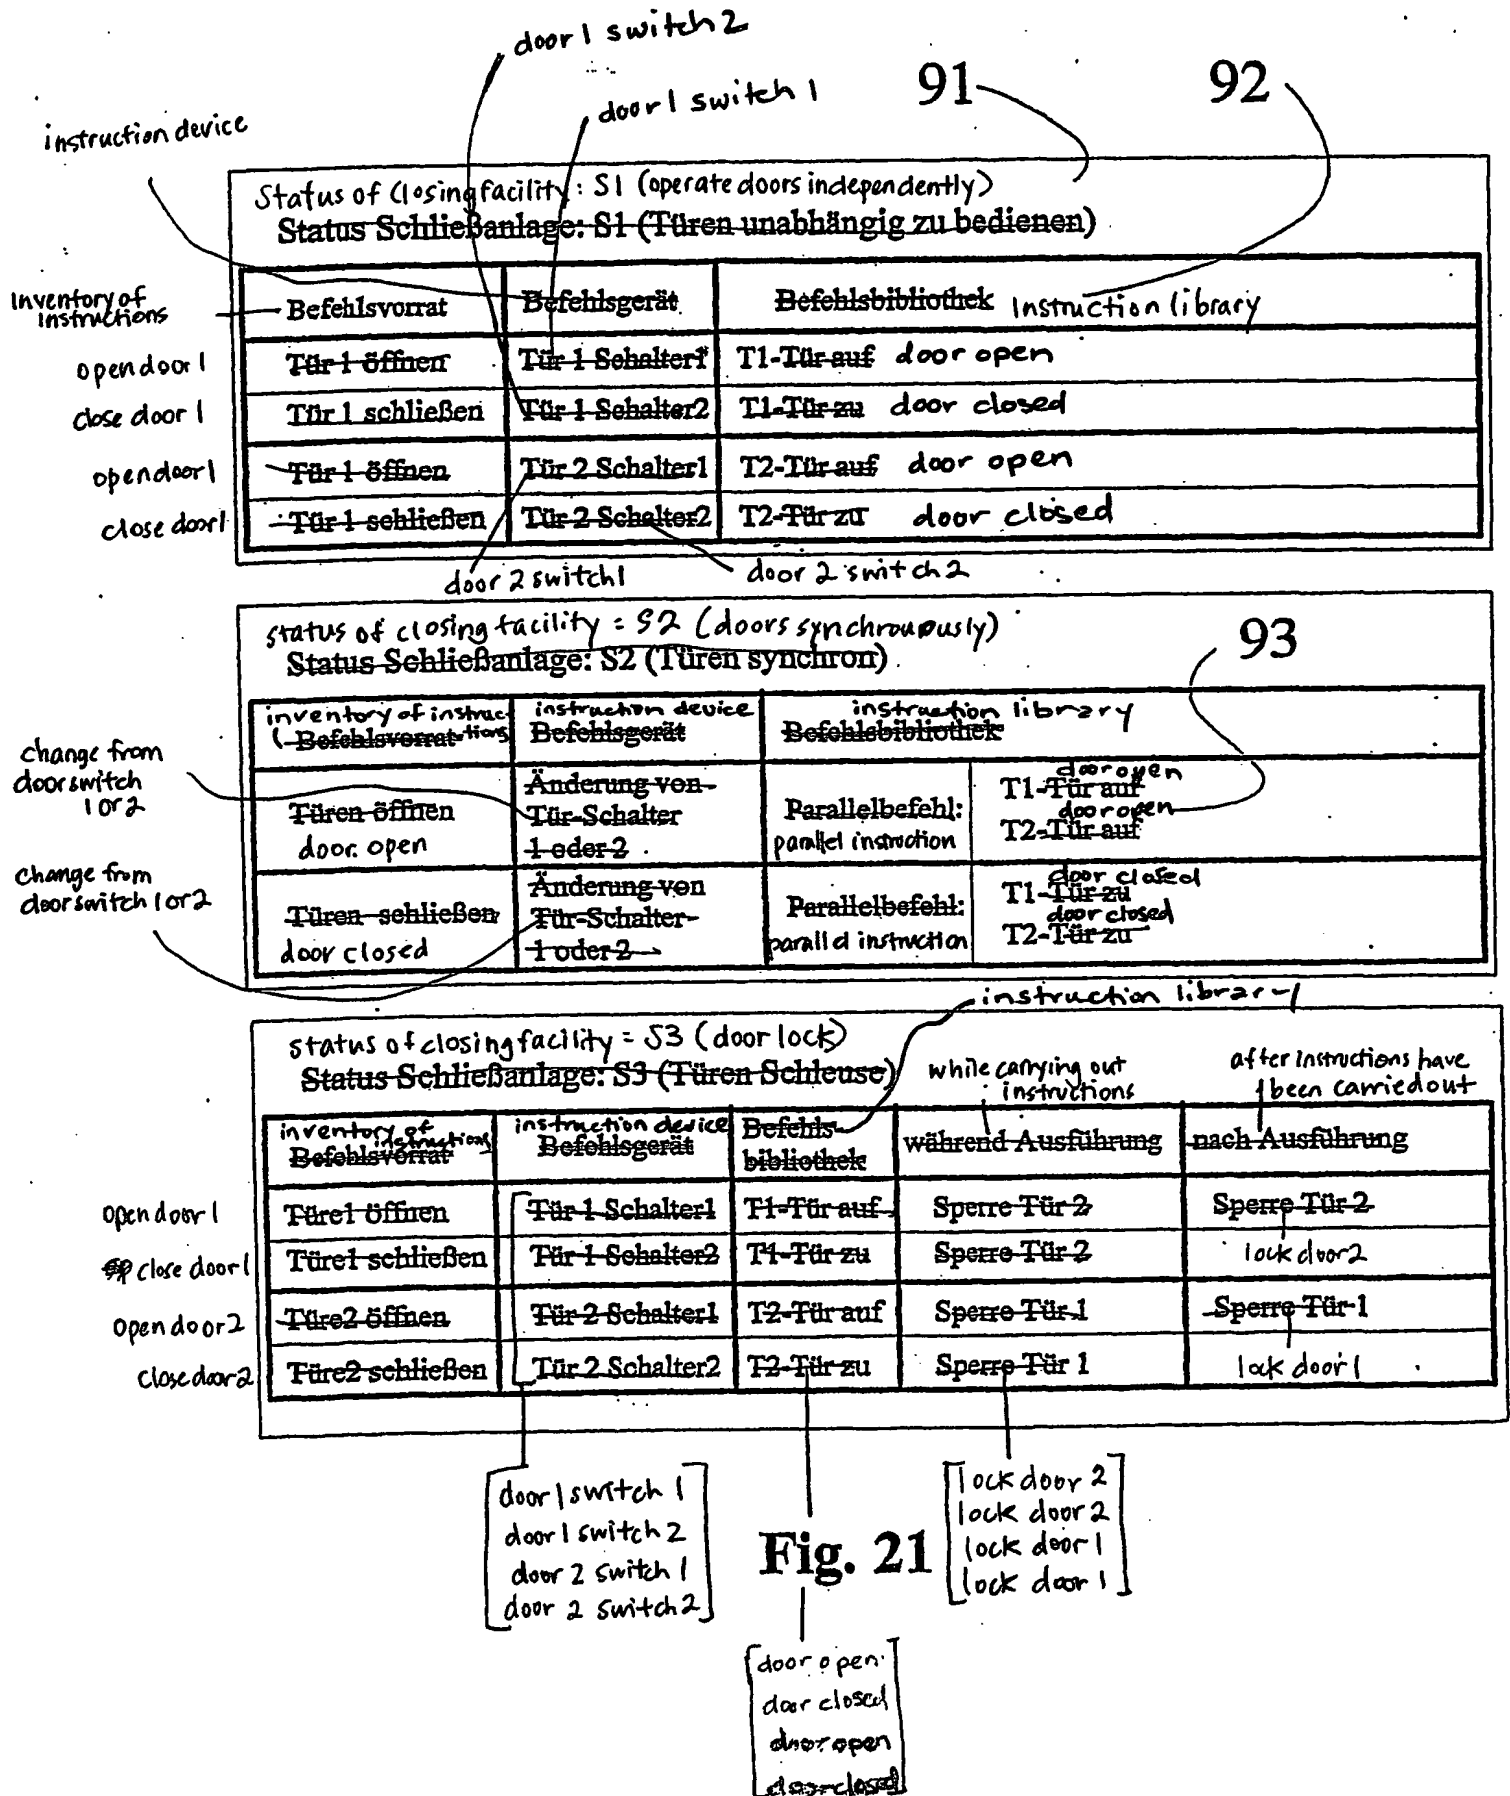 door 1 switch 2
door 1 switch 1
91
92
instruction device
Status of closing facility: S1 (operate doors independently)
Status Schließanlage: S1 (Türen unabhängig zu bedienen)
Inventory of instructions
Befehlsvorrat Befehlsgerät Befehlsbibliothek Instruction library
open door 1 Tür 1 öffnen Tür 1 Schalter1 T1-Tür auf door open
close door 1 Tür 1 schließen Tür 1 Schalter2 T1-Tür zu door closed
open door 1 Tür 1 öffnen Tür 2 Schalter1 T2-Tür auf door open
close door 1 Tür 1 schließen Tür 2 Schalter2 T2-Tür zu door closed
door 2 switch 1
door 2 switch 2
status of closing facility = S2 (doors synchronously)
Status Schließanlage: S2 (Türen synchron)
93
inventory of instructions instruction device instruction library
Befehlsvorrat Befehlsgerät Befehlsbibliothek
change from
door switch
1 or 2
Türen öffnen
door open
Änderung von
Tür-Schalter
1 oder 2
Parallelbefehl:
parallel instruction
door open
T1-Tür auf
door open
T2-Tür auf
change from
door switch 1 or 2
Türen schließen
door closed
Änderung von
Tür-Schalter
1 oder 2
Parallelbefehl:
parallel instruction
door closed
T1-Tür zu
door closed
T2-Tür zu
instruction library
status of closing facility = S3 (door lock)
Status Schließanlage: S3 (Türen Schleuse)
while carrying out
instructions
after instructions have
been carried out
inventory of
instructions
Befehlsvorrat
instruction device
Befehlsgerät
Befehls-
bibliothek
während Ausführung
nach Ausführung
open door 1 Türe1 öffnen Tür 1 Schalter1 T1-Tür auf Sperre Tür 2 Sperre Tür 2
close door 1 Türe1 schließen Tür 1 Schalter2 T1-Tür zu Sperre Tür 2 lock door 2
open door 2 Türe2 öffnen Tür 2 Schalter1 T2-Tür auf Sperre Tür 1 Sperre Tür 1
close door 2 Türe2 schließen Tür 2 Schalter2 T2-Tür zu Sperre Tür 1 lock door 1
door 1 switch 1
door 1 switch 2
door 2 switch 1
door 2 switch 2
Fig. 21
lock door 2
lock door 2
lock door 1
lock door 1
door open
door closed
door open
door closed